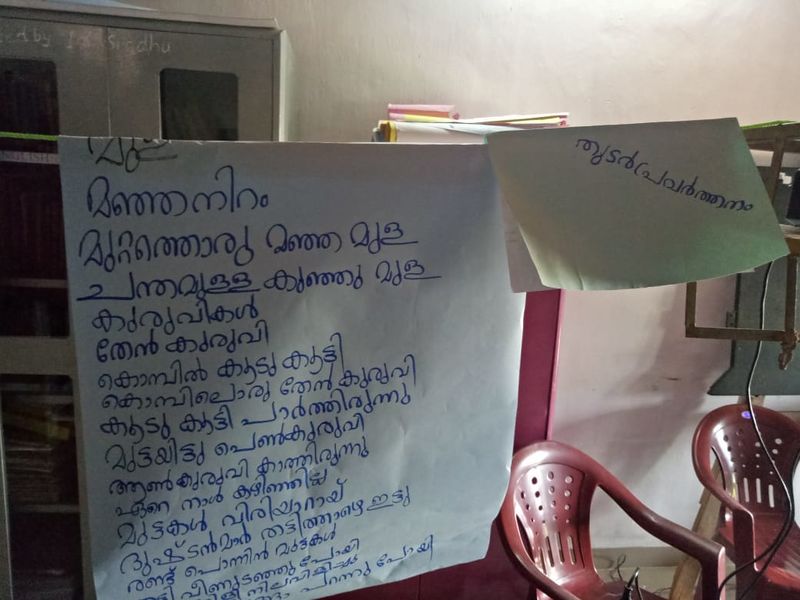 മുള
മഞ്ഞനിറം
മുറ്റത്തൊരു മഞ്ഞ മുള
ചന്തമുള്ള കുഞ്ഞു മുള
കുരുവികൾ
തേൻ കുരുവി
കൊമ്പിൽ കൂടു കൂട്ടി
കൊമ്പിലൊരു തേൻ കുരുവി
കൂടു കൂട്ടി പാർത്തിരുന്നു
മുട്ടയിട്ടു പെൺകുരുവി
ആൺകുരുവി കാത്തിരുന്നു
ഏറെ നാൾ കഴിഞ്ഞിട്ട്
മുട്ടകൾ വിരിയാറായ്
ദുഷ്ടൻമാർ തട്ടിത്താഴെ ഇട്ടു
രണ്ട് പൊന്നിൻ മുട്ടകൾ
വീണുടഞ്ഞു പോയി
പറന്നു പോയി
തുടർപ്രവർത്തനം
Sindhu